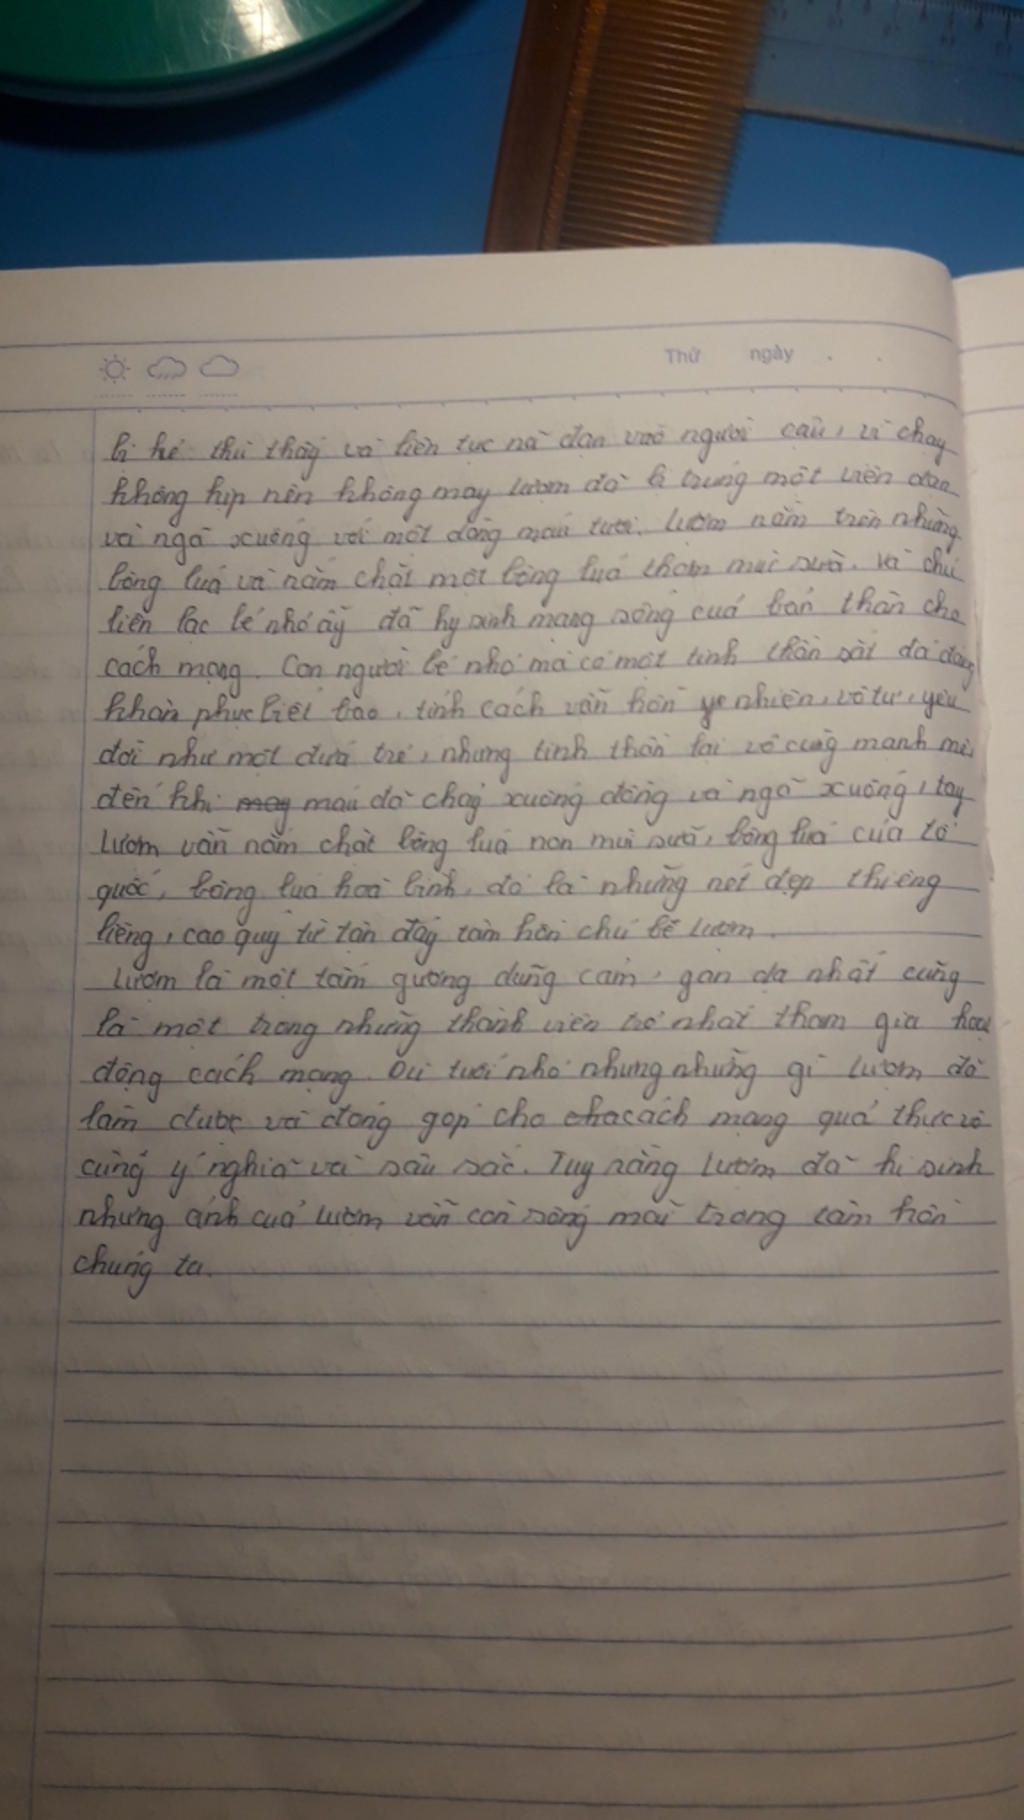 Thứ ngày . .
bị kẻ thù thấy và liên tục nã đạn vào người cậu, vì chạy
không kịp nên không may lượm đã bị trúng một viên đạn
và ngã xuống với một dòng máu tươi. Lượm nằm trên những
bông luá và nắm chặt một bông luá thơm mùi sữa. Và chú
liên lạc bé nhỏ ấy đã hy sinh mạng sống của bản thân cho
cách mạng. Con người bé nhỏ mà có một tinh thần sắt đá đáng
khân phục biết bao, tính cách vẫn hồn nhiên, vô tư, yêu
đời như một đứa trẻ, nhưng tinh thần lại vô cùng mạnh mẽ,
đến khi máu đã chảy xuống đồng và ngã xuống, tay
Lượm vẫn nắm chặt bông luá non mùi sữa, bông luá của tổ
quốc, bông luá hoà bình, đó là những nét đẹp thiêng
liêng, cao quý từ tận đáy tâm hồn chú bé lượm.
Lượm là một tấm gương dũng cảm, gan dạ nhất cũng
là một trong những thành viên trẻ nhất tham gia hoạt
động cách mạng. tuổi nhỏ nhưng những gì lượm đã
làm được và đóng góp cho cách mạng quả thực vô
cùng ý nghĩa và sâu sắc. Tuy rằng lượm đã hi sinh
nhưng ảnh của lượm vẫn còn sống mãi trong tâm hồn
chúng ta.